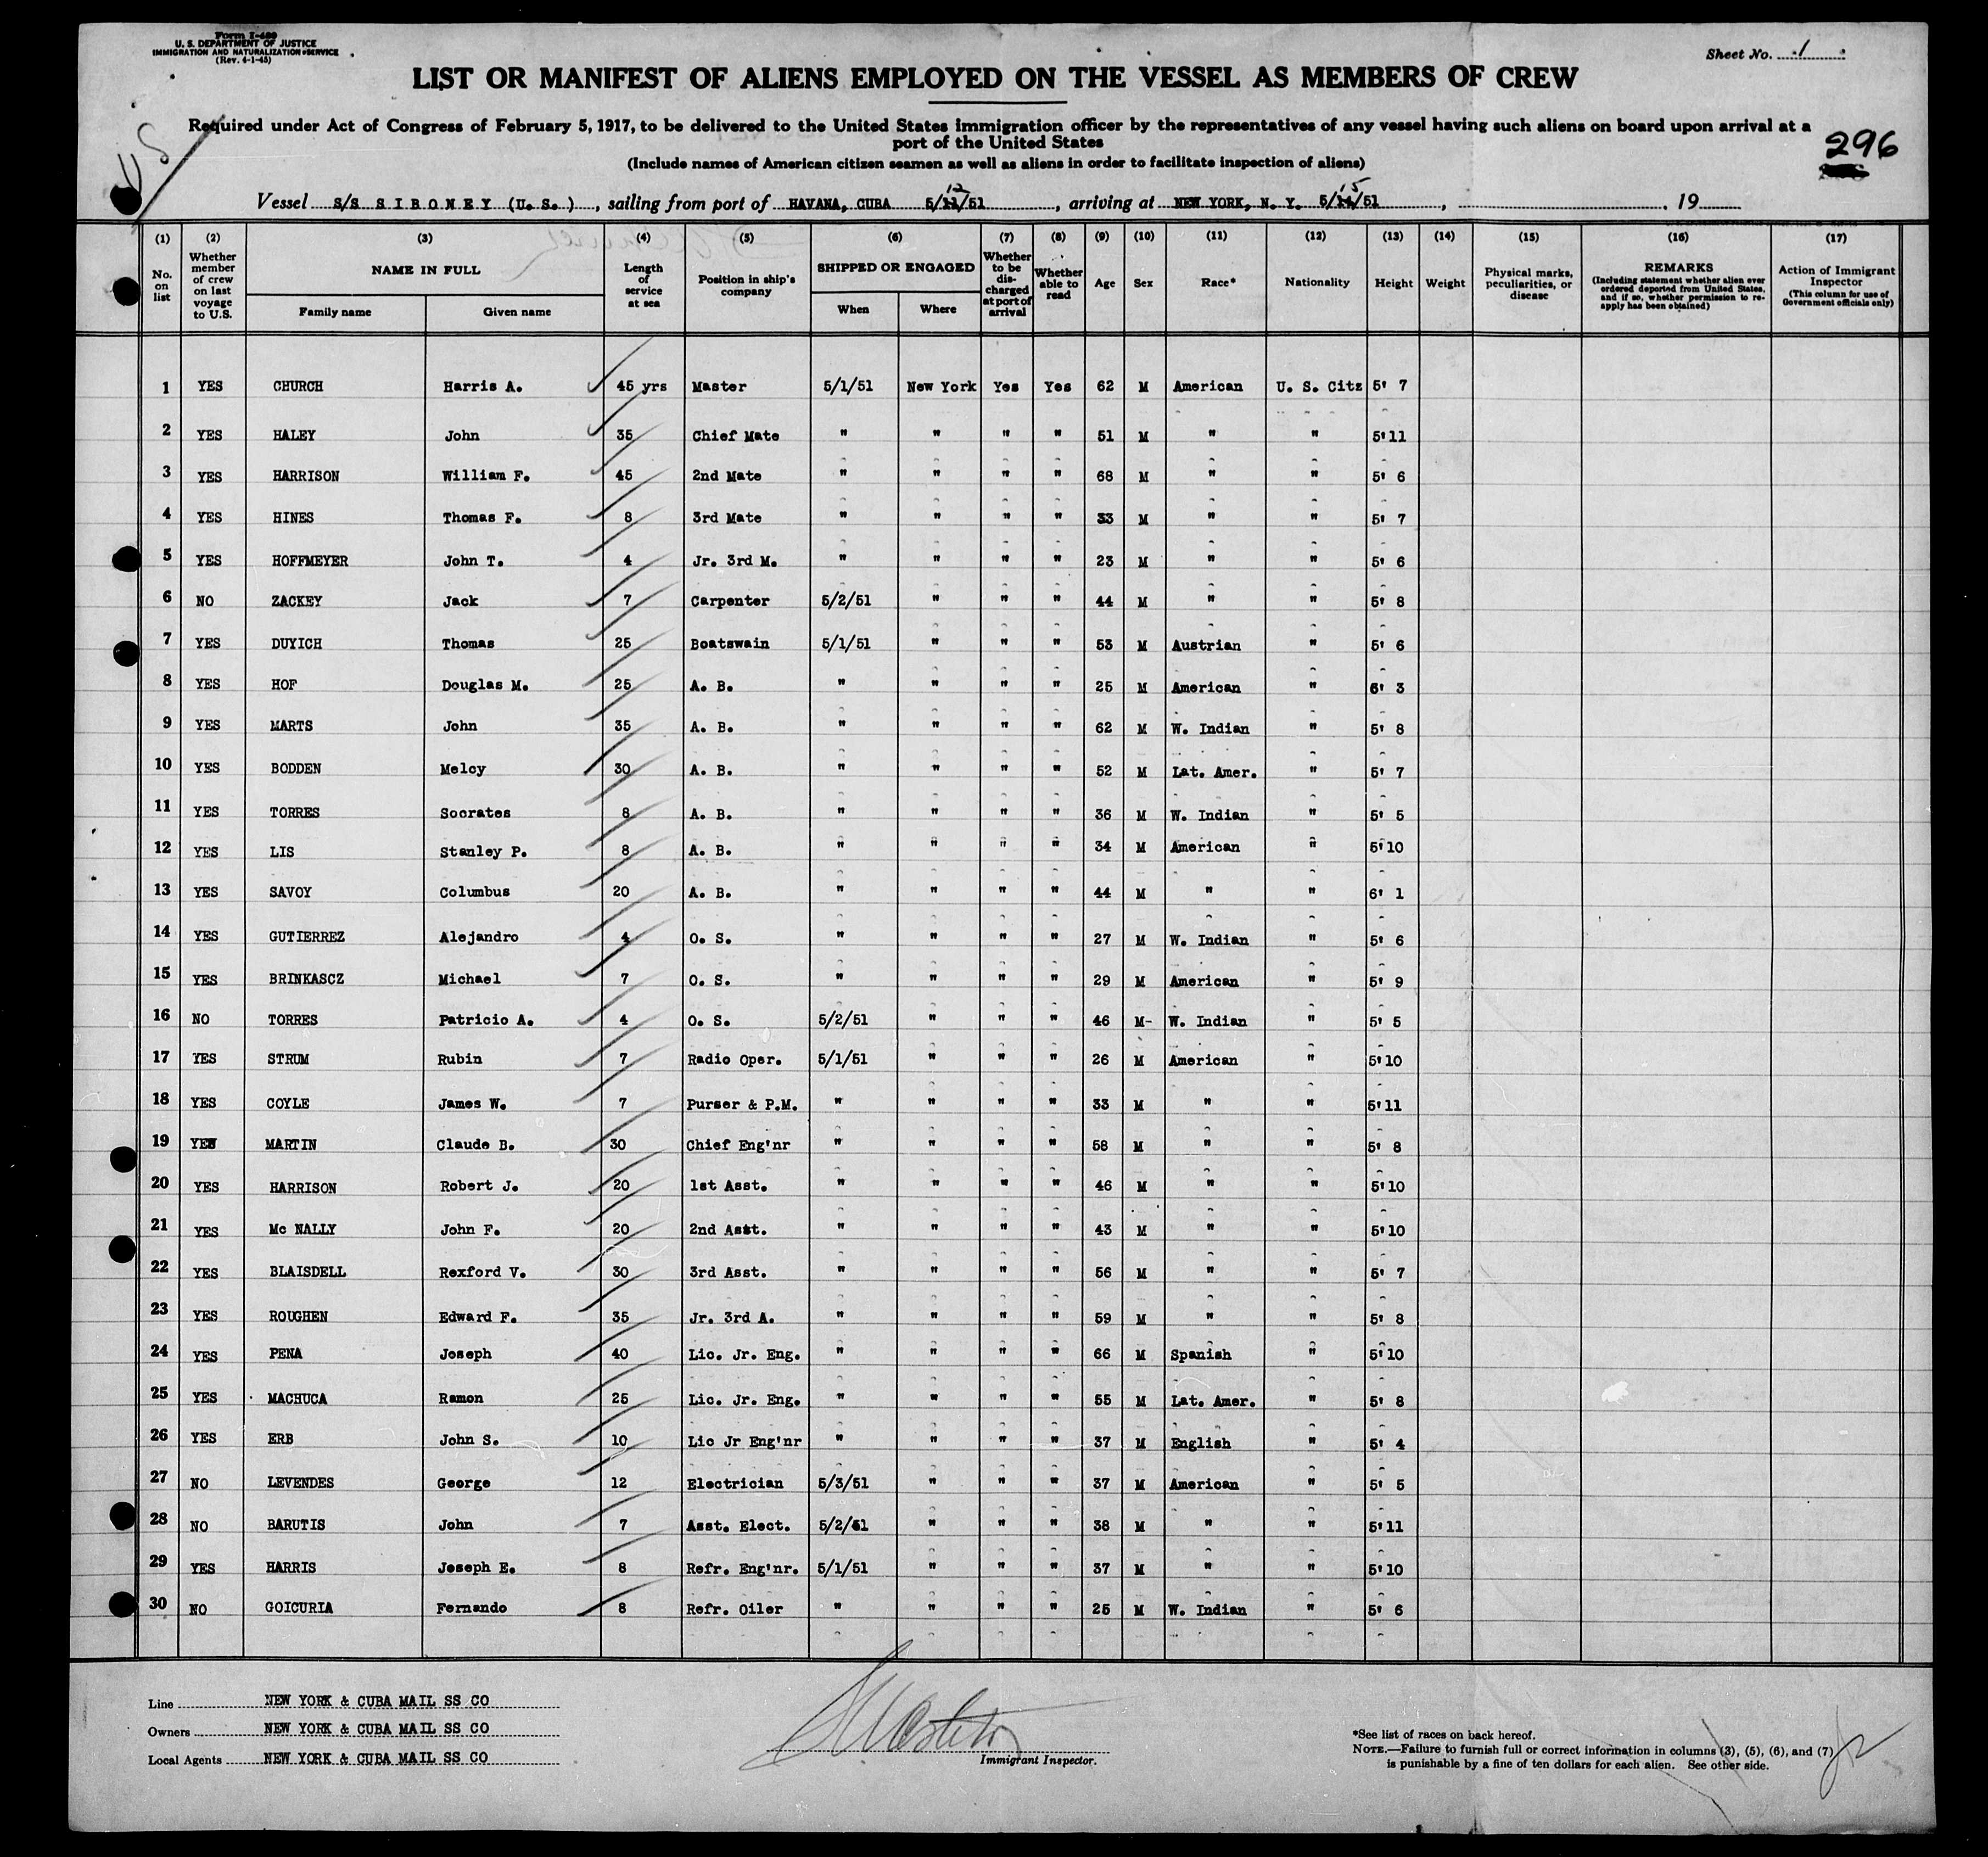 Form I-480
U. S. DEPARTMENT OF JUSTICE
IMMIGRATION AND NATURALIZATION SERVICE
(Rev. 4-1-45)
Sheet No. 1
LIST OR MANIFEST OF ALIENS EMPLOYED ON THE VESSEL AS MEMBERS OF CREW
Required under Act of Congress of February 5, 1917, to be delivered to the United States immigration officer by the representatives of any vessel having such aliens on board upon arrival at a
port of the United States
(Include names of American citizen seamen as well as aliens in order to facilitate inspection of aliens)
US
296
12 15
Vessel S/S SIBONEY (U.S.), sailing from port of HAVANA, CUBA 5/11/51, arriving at NEW YORK, N. Y. 5/14/51, 19
(1) (2) (3) (4) (5) (6) (7) (8) (9) (10) (11) (12) (13) (14) (15) (16) (17)
No. on list
Whether member of crew on last voyage to U.S.
NAME IN FULL
Family name Given name
Length of service at sea
Position in ship's company
SHIPPED OR ENGAGED
When Where
Whether to be discharged at port of arrival
Whether able to read
Age Sex Race* Nationality Height Weight
Physical marks, peculiarities, or disease
REMARKS
(Including statement whether alien ever ordered deported from United States, and if so, whether permission to reapply has been obtained)
Action of Immigrant Inspector
(This column for use of Government officials only)
1 YES CHURCH Harris A. 45 yrs Master 5/1/51 New York Yes Yes 62 M American U. S. Citz 5' 7
2 YES HALEY John 35 Chief Mate " " " " 51 M " " 5'11
3 YES HARRISON William F. 45 2nd Mate " " " " 68 M " " 5' 6
4 YES HINES Thomas F. 8 3rd Mate " " " " 33 M " " 5' 7
5 YES HOFFMEYER John T. 4 Jr. 3rd M. " " " " 23 M " " 5' 6
6 NO ZACKEY Jack 7 Carpenter 5/2/51 " " " 44 M " " 5' 8
7 YES DUYICH Thomas 25 Boatswain 5/1/51 " " " 53 M Austrian " 5' 6
8 YES HOF Douglas M. 25 A. B. " " " " 25 M American " 6' 3
9 YES MARTS John 35 A. B. " " " " 62 M W. Indian " 5' 8
10 YES BODDEN Meloy 30 A. B. " " " " 52 M Lat. Amer. " 5' 7
11 YES TORRES Socrates 8 A. B. " " " " 36 M W. Indian " 5' 5
12 YES LIS Stanley P. 8 A. B. " " " " 34 M American " 5'10
13 YES SAVOY Columbus 20 A. B. " " " " 44 M " " 6' 1
14 YES GUTIERREZ Alejandro 4 O. S. " " " " 27 M W. Indian " 5' 6
15 YES BRINKASCZ Michael 7 O. S. " " " " 29 M American " 5' 9
16 NO TORRES Patricio A. 4 O. S. 5/2/51 " " " 46 M- W. Indian " 5' 5
17 YES STRUM Rubin 7 Radio Oper. 5/1/51 " " " 26 M American " 5'10
18 YES COYLE James W. 7 Purser & P.M. " " " " 33 M " " 5'11
19 YES MARTIN Claude B. 30 Chief Eng'nr " " " " 58 M " " 5' 8
20 YES HARRISON Robert J. 20 1st Asst. " " " " 46 M " " 5'10
21 YES Mc NALLY John F. 20 2nd Asst. " " " " 43 M " " 5'10
22 YES BLAISDELL Rexford V. 30 3rd Asst. " " " " 56 M " " 5' 7
23 YES ROUGHEN Edward F. 35 Jr. 3rd A. " " " " 59 M " " 5' 8
24 YES PENA Joseph 40 Lic. Jr. Eng. " " " " 66 M Spanish " 5'10
25 YES MACHUCA Ramon 25 Lic. Jr. Eng. " " " " 55 M Lat. Amer. " 5' 8
26 YES ERB John S. 10 Lic Jr Eng'nr " " " " 37 M English " 5' 4
27 NO LEVENDES George 12 Electrician 5/3/51 " " " 37 M American " 5' 5
28 NO BARUTIS John 7 Asst. Elect. 5/2/51 " " " 38 M " " 5'11
29 YES HARRIS Joseph E. 8 Refr. Eng'nr. 5/1/51 " " " 37 M " " 5'10
30 NO GOICURIA Fernando 8 Refr. Oiler " " " " 25 M W. Indian " 5' 6
Line NEW YORK & CUBA MAIL SS CO
Owners NEW YORK & CUBA MAIL SS CO
Local Agents NEW YORK & CUBA MAIL SS CO
Immigrant Inspector.
*See list of races on back hereof.
NOTE.—Failure to furnish full or correct information in columns (3), (5), (6), and (7)
is punishable by a fine of ten dollars for each alien. See other side.